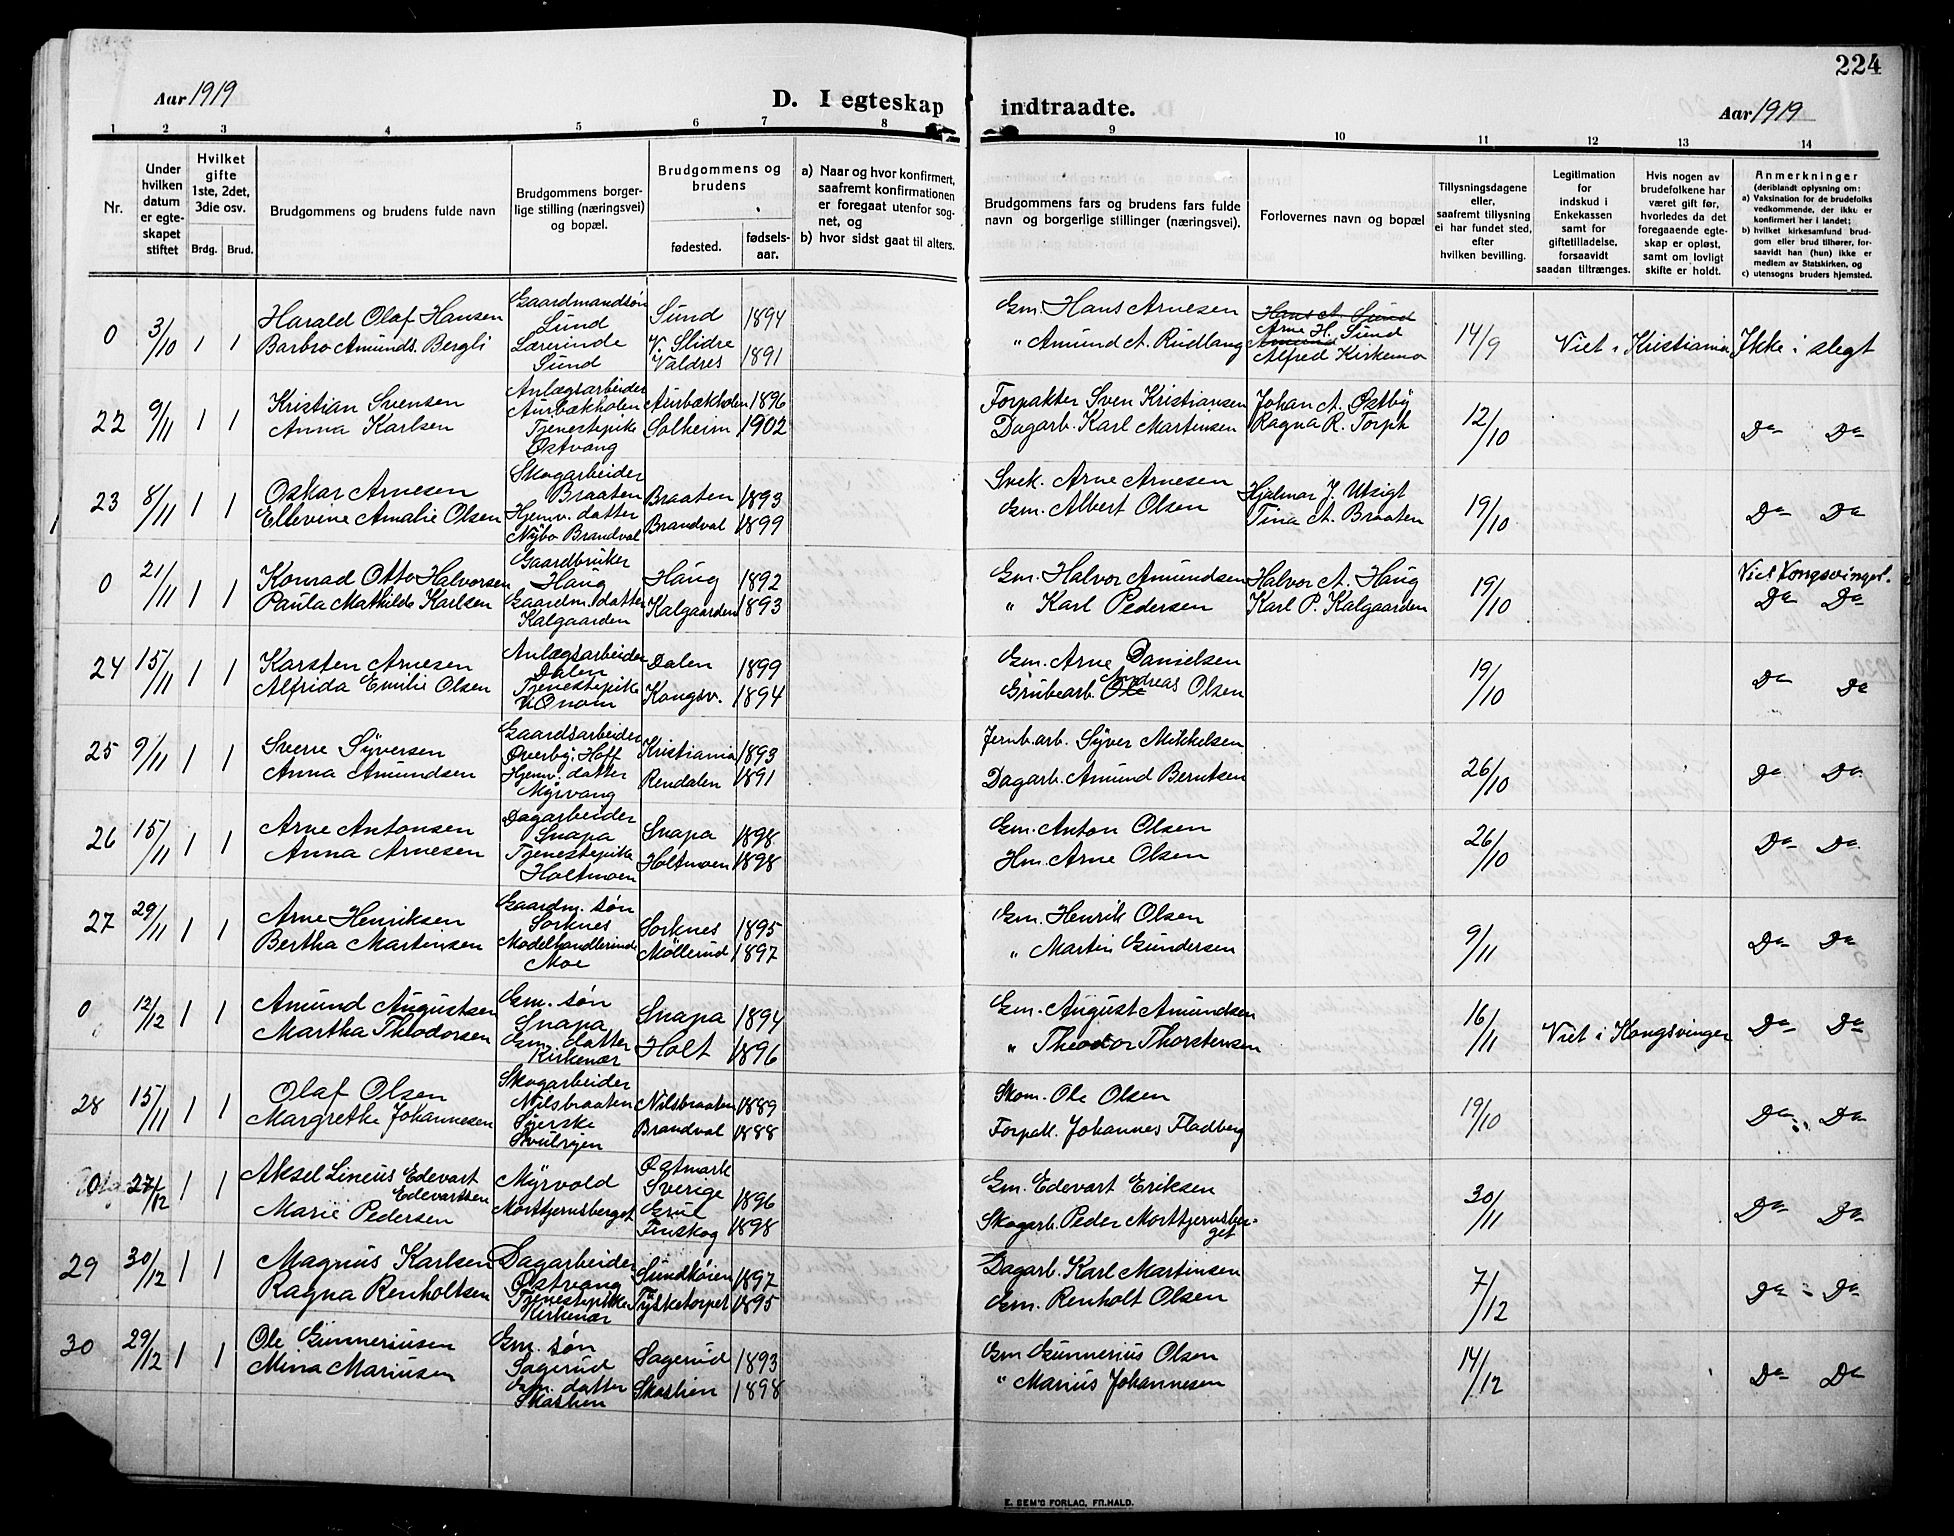 224
Aar 1919
D. I egteskap indtraadte.
Aar 1919
1 2 3 4 5 6 7 8 9 10 11 12 13 14
Nr.
Under hvilken datum er egteskapet stiftet
Hvilket gifte 1ste, 2det, 3die osv.
Brdg. Brud.
Brudgommens og brudens fulde navn
Brudgommens borgerlige stilling (næringsvei) og bopæl.
Brudgommens og brudens
fødested.
fødselsaar.
a) Naar og hvor konfirmert, saafremt konfirmationen er foregaat utenfor sognet, og
b) hvor sidst gaat til alters.
Brudgommens fars og brudens fars fulde navn og borgerlige stillinger (næringsvei).
Forlovernes navn og bopæl
Tillysningsdagene eller, saafremt tillysning ei har fundet sted, efter hvilken bevilling.
Legitimation for indskud i Enkekassen samt for giftetilladelse, forsaavidt saadan tiltrænges.
Hvis nogen av brudefolkene har været gift før, hvorledes da det foregaaende egteskap er opløst, samt om lovligt skifte er holdt.
Anmerkninger
(deriblandt oplysning om:
a) Vaksination for de brudefolks vedkommende, der ikke er konfirmert her i landet;
b) hvilket kirkesamfund brudgom eller brud tilhører, forsaavidt han (hun) ikke er medlem av Statskirken, og
c) utensogns bruders hjemsted.
0 3/10 1 1 Harald Olaf Hansen Gaardmandsøn Lund Sund 1894 Gm. Hans Arnesen Hans A. Sund Arne H. Sund 14/9 Viet i Kristiania Ikke i slegt
Barbro Amunds. Bergli Lærerinde Sund V. Slidre Valdres 1891 " Amund A. Rudlang Amund Alfred Kirkemo
22 9/11 1 1 Kristian Svensen Anlægsarbeider Aurbækholen Aurbækholen 1896 Forpakter Sven Kristiansen Johan A. Østby 12/10 Do Do
Anna Karlsen Tjenestepike Østvang Solheim 1902 Dagarb. Karl Martinsen Ragna R. Torph
23 8/11 1 1 Oskar Arnesen Skogarbeider Braaten Braaten 1893 Svek. Arne Arnesen Hjalmar J. Utsigt 19/10 Do Do
Ellevine Amalie Olsen Hjemv. datter Nybo Brandval Brandval 1899 Gm. Albert Olsen Tina A. Braaten
0 21/11 1 1 Konrad Otto Halvorsen Gaardbruker Haug Haug 1892 Gm. Halvor Amundsen Halvor A. Haug 19/10 Viet Kongsvinger.
Paula Mathilde Karlsen Gaardm. datter Kalgaarden Kalgaarden 1893 " Karl Pedersen Karl P. Kalgaarden Do Do
24 15/11 1 1 Karsten Arnesen Anlægsarbeider Dalen Dalen 1899 Gm. Arne Danielsen 19/10 Do Do
Alfrida Emilie Olsen Tjenestepike Kongsv. 1894 Grubearb. Ole Andreas Olsen
25 9/11 1 1 Sverre Syversen Gaardsarbeider Overby, Hoff Kristiania 1893 Jernb.arb. Syver Mikkelsen 26/10 Do Do
Anna Amundsen Hjemv. datter Myrvang Rendalen 1891 Dagarb. Amund Berntsen
26 15/11 1 1 Arne Antonsen Dagarbeider Snapa Snapa 1898 Gm. Anton Olsen 26/10 Do Do
Anna Arnesen Tjenestepike Holtmoen Holtmoen 1898 Hm. Arne Olsen
27 29/11 1 1 Arne Henriksen Gaardm. søn Sorknes Sorknes 1895 Gm. Henrik Olsen 9/11 Do Do
Bertha Martinsen Modehandlerinde Moe Møllerud 1897 " Martin Gundersen
0 12/12 1 1 Amund Augustsen Gm. søn Snapa Snapa 1894 Gm. August Amundsen 16/11 Viet i Kongsvinger Do Do
Martha Theodorsen Gm. datter Kirkenær Holt 1896 " Theodor Thorstensen
28 15/11 1 1 Olaf Olsen Skogarbeider Nilsbraaten Nilsbraaten 1889 Skom. Ole Olsen 19/10 Do Do
Margrethe Johannesen Syerske Brandval 1888 Forpakt. Johannes Fladberg
0 27/12 1 1 Aksel Lineus Edevart Edevartsen Myrvold Østmark Sverige 1896 Gm. Edevart Eriksen 30/11 Do Do
Marie Pedersen Morttjernsberget Grue Finskog 1898 Skogarb. Peder Morttjernsberget
29 30/12 1 1 Magnus Karlsen Dagarbeider Østvang Sundkøien 1897 Dagarb. Karl Martinsen 7/12 Do Do
Ragna Renholtsen Tjenestepike Kirkenær Tysketorpet 1895 Gm. Renholt Olsen
30 29/12 1 1 Ole Gunneriusen Gm. søn Sagerud Sagerud 1893 Gm Gunnerius Olsen 14/12 Do Do
Mina Mariusen Gm. datter Skaslien Skaslien 1898 " Marius Johannesen
E. SEM'S FORLAG, FR.HALD.